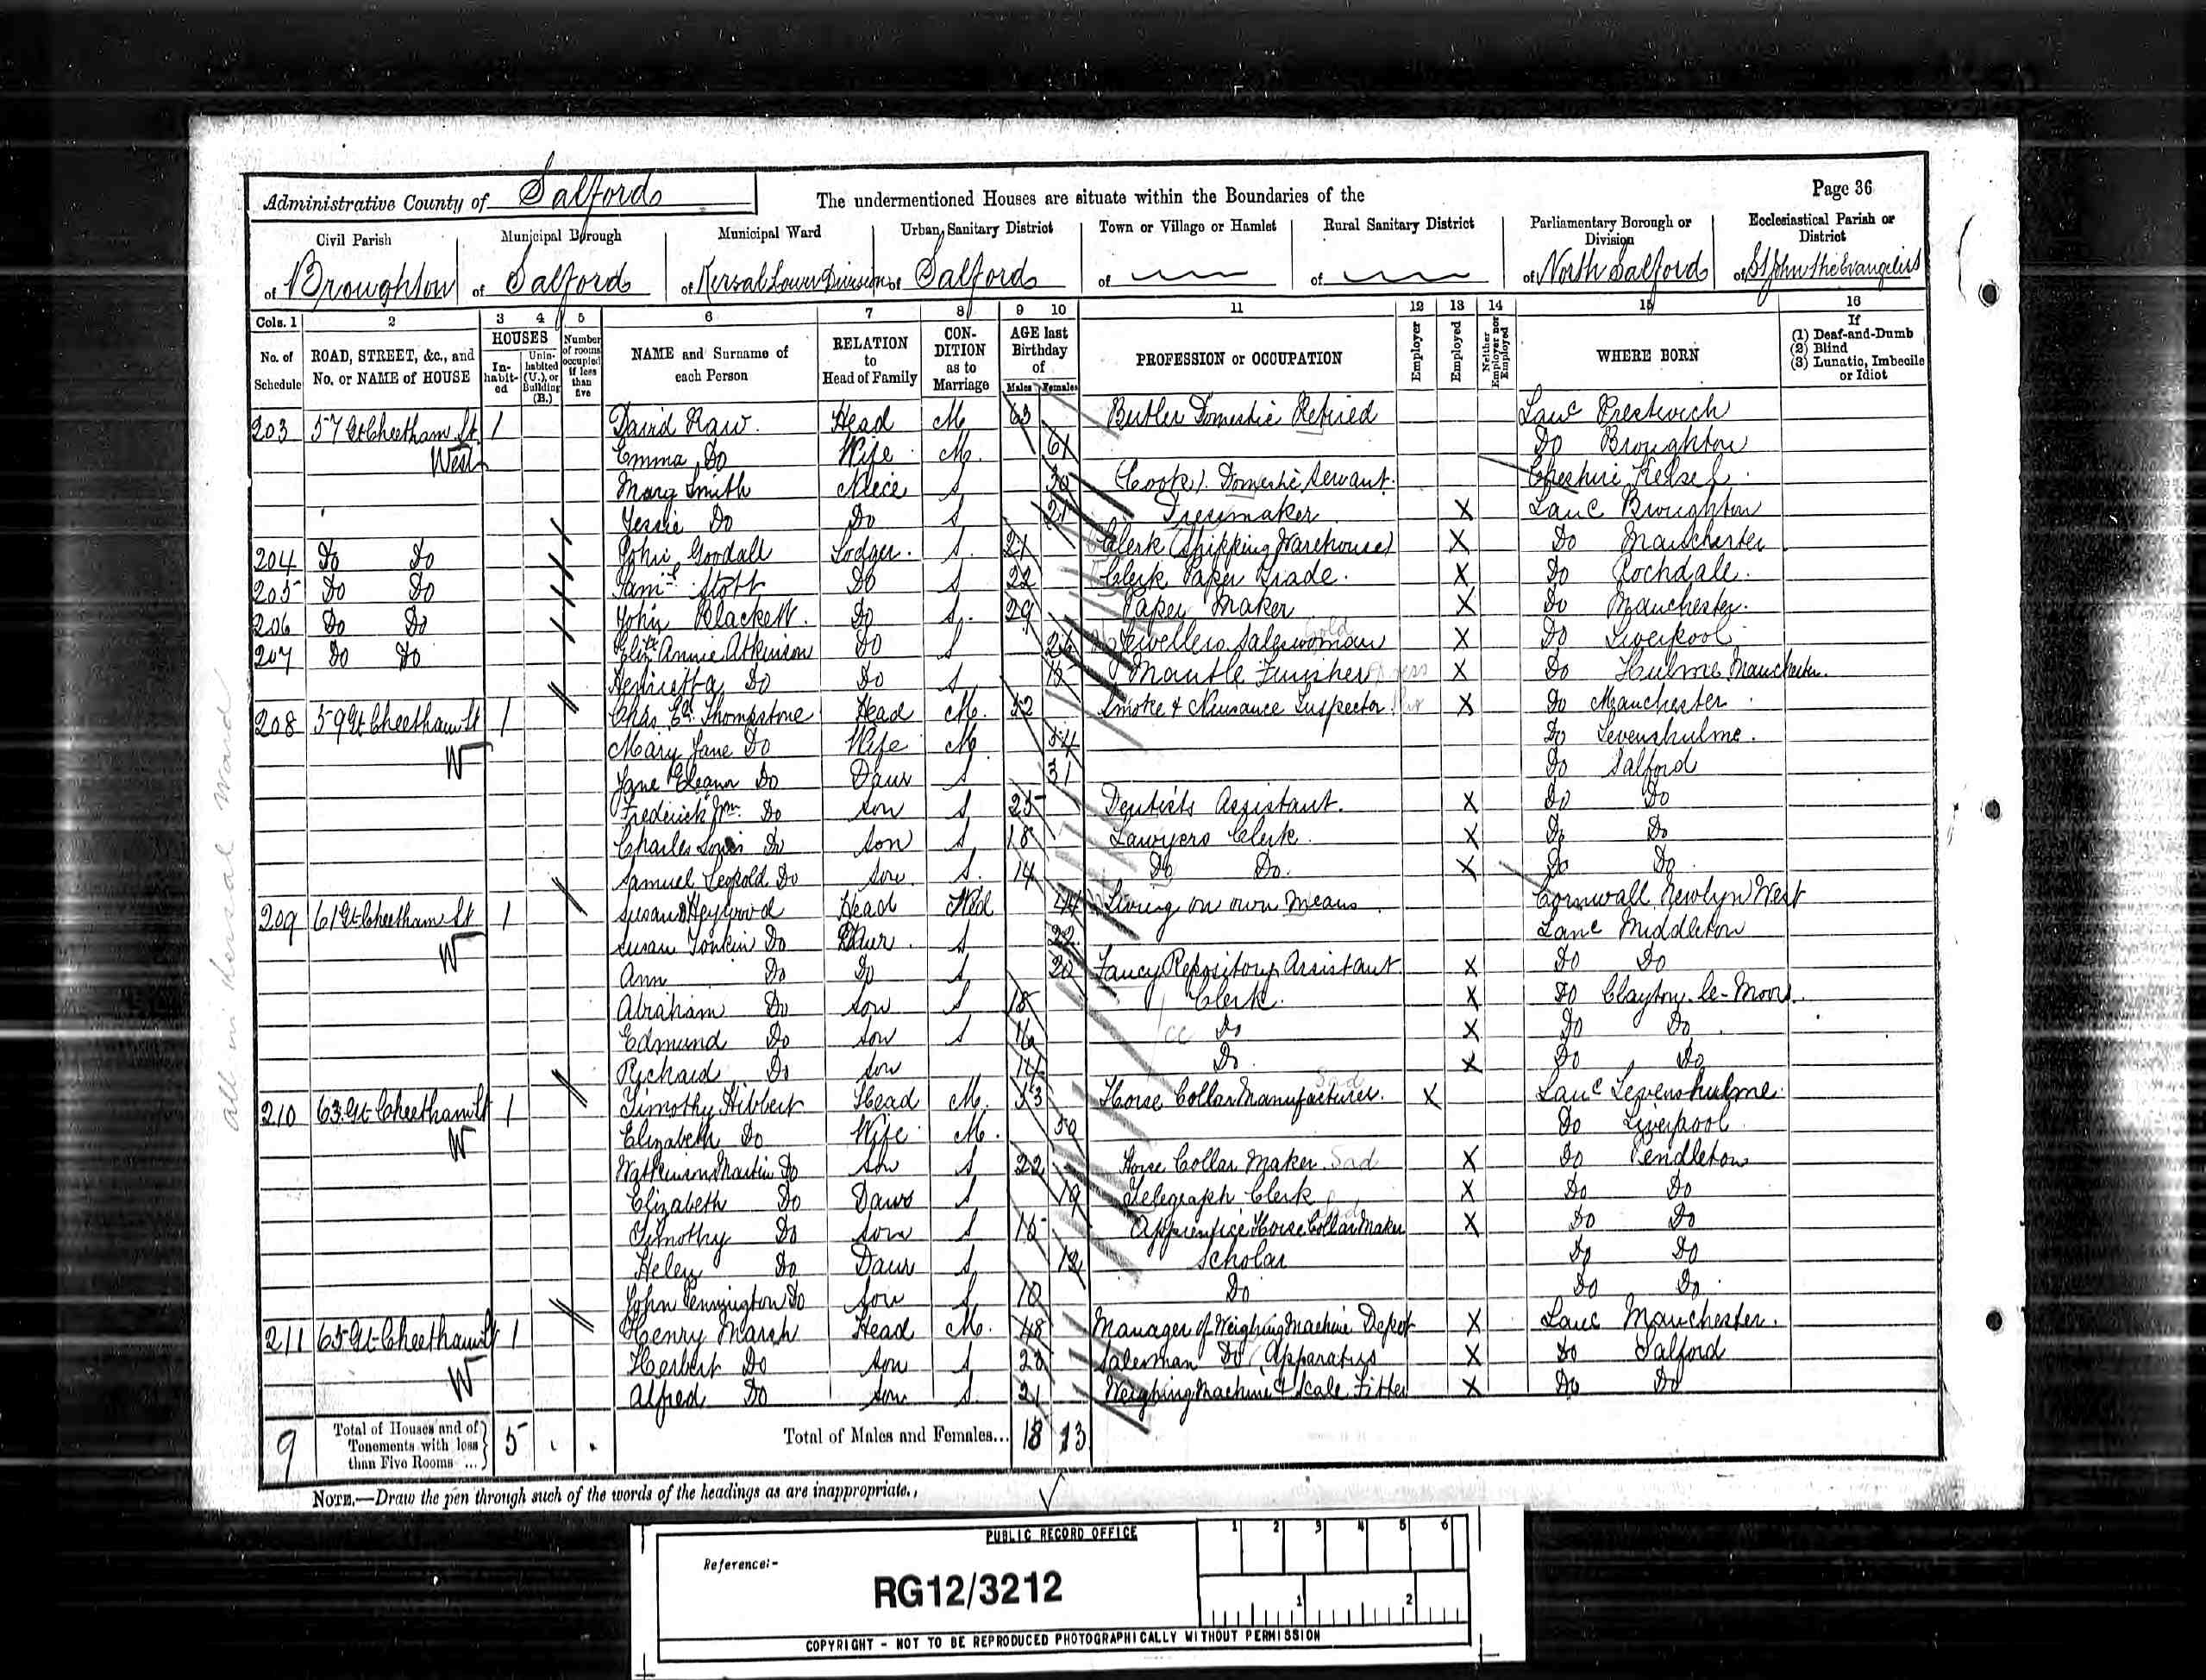 Administrative County of Salford
The undermentioned Houses are situate within the Boundaries of the
Page 36
Civil Parish of Broughton
Municipal Borough of Salford
Municipal Ward of Kersal Lower Division
Urban Sanitary District of Salford
Town or Village or Hamlet of
Rural Sanitary District of
Parliamentary Borough or Division of North Salford
Ecclesiastical Parish or District of St John the Evangelist
Cols. 1 2 3 4 5 6 7 8 9 10 11 12 13 14 15 16
No. of Schedule
ROAD, STREET, &c., and No. or NAME of HOUSE
HOUSES
Inhabited
Uninhabited (U.), or Building (B.)
Number of rooms occupied if less than five
NAME and Surname of each Person
RELATION to Head of Family
CONDITION as to Marriage
AGE last Birthday of
Males Females
PROFESSION or OCCUPATION
Employer
Employed
Neither Employer nor Employed
WHERE BORN
If (1) Deaf-and-Dumb (2) Blind (3) Lunatic, Imbecile or Idiot
203 57 Gt Cheetham St 1 David Raw. Head M 63 Butler Domestic Retired Lanc Prestwich
West Emma Do Wife M. 61 Do Broughton
Mary Smith Niece S 30 Cook Domestic Servant. Cheshire Kelsal
Jessie Do Do S 21 Dressmaker X Lanc Broughton
204 Do Do John Goodall Lodger. S. 21 Clerk (Shipping Warehouse) X Do Manchester
205 Do Do Saml Stott Do S 22 Clerk Paper Trade. X Do Rochdale.
206 Do Do John Blackett. Do S. 29 Paper Maker X Do Manchester.
207 Do Do Elizth Annie Atkinson Do S Jewellers Saleswoman Gold X Do Liverpool
Henrietta Do Do S. Mantle Finisher X Do Hulme Manchester.
208 59 Gt Cheetham St 1 Chas Ed. Thompstone Head M. 52 Smoke & Nuisance Inspector. X Do Manchester
W Mary Jane Do Wife M 54 Do Levenshulme.
Jane Eleanor Do Daur S 31 Do Salford
Frederick Wm. Do Son S 25 Dentists Assistant. X Do Do
Charles Do Son S 18 Lawyers Clerk. X Do Do
Samuel Leopold Do Son. S. 14 Do Do. X Do Do.
209 61 Gt Cheetham St 1 Susan Heywood Head Wid 44 Living on own Means Cornwall Newlyn West
W Susan Tonkin Do Daur. S 22 Lanc Middleton
Ann Do Do S 20 Fancy Repository Assistant X Do Do
Abraham Do Son S 18 Clerk. X Do Clayton-le-Moors.
Edmund Do Son S 16 Do X Do Do
Richard Do Son 14 Do. X Do Do
210 63 Gt Cheetham St 1 Timothy Hibbert Head M. 53 Horse Collar Manufacturer. Sad X Lanc Levenshulme.
W Elizabeth Do Wife M. 50 Do Liverpool
Watkinson Martin Do Son S 22 Horse Collar Maker. Sad X Do Pendleton
Elizabeth Do Daur S 19 Telegraph Clerk X Do Do
Timothy Do Son S 15 Apprentice Horse Collar Maker X Do Do
Helen Do Daur S 12 Scholar Do Do
John Pennington Do Son S 10 Do Do Do.
211 65 Gt Cheetham St 1 Henry Marsh Head M. 48 Manager of Weighing Machine Depot X Lanc Manchester.
W Herbert Do Son S Salesman Do Apparatus X Do Salford
Alfred Do Son S. 21 Weighing Machine & Scale Fitter X Do Do
9 Total of Houses and of Tenements with less than Five Rooms ... 5 Total of Males and Females... 18 13
NOTE.—Draw the pen through such of the words of the headings as are inappropriate.
all in Kersal Ward
PUBLIC RECORD OFFICE
1 2 3 4 5 6
Reference:-
RG12/3212
1 2
COPYRIGHT - NOT TO BE REPRODUCED PHOTOGRAPHICALLY WITHOUT PERMISSION